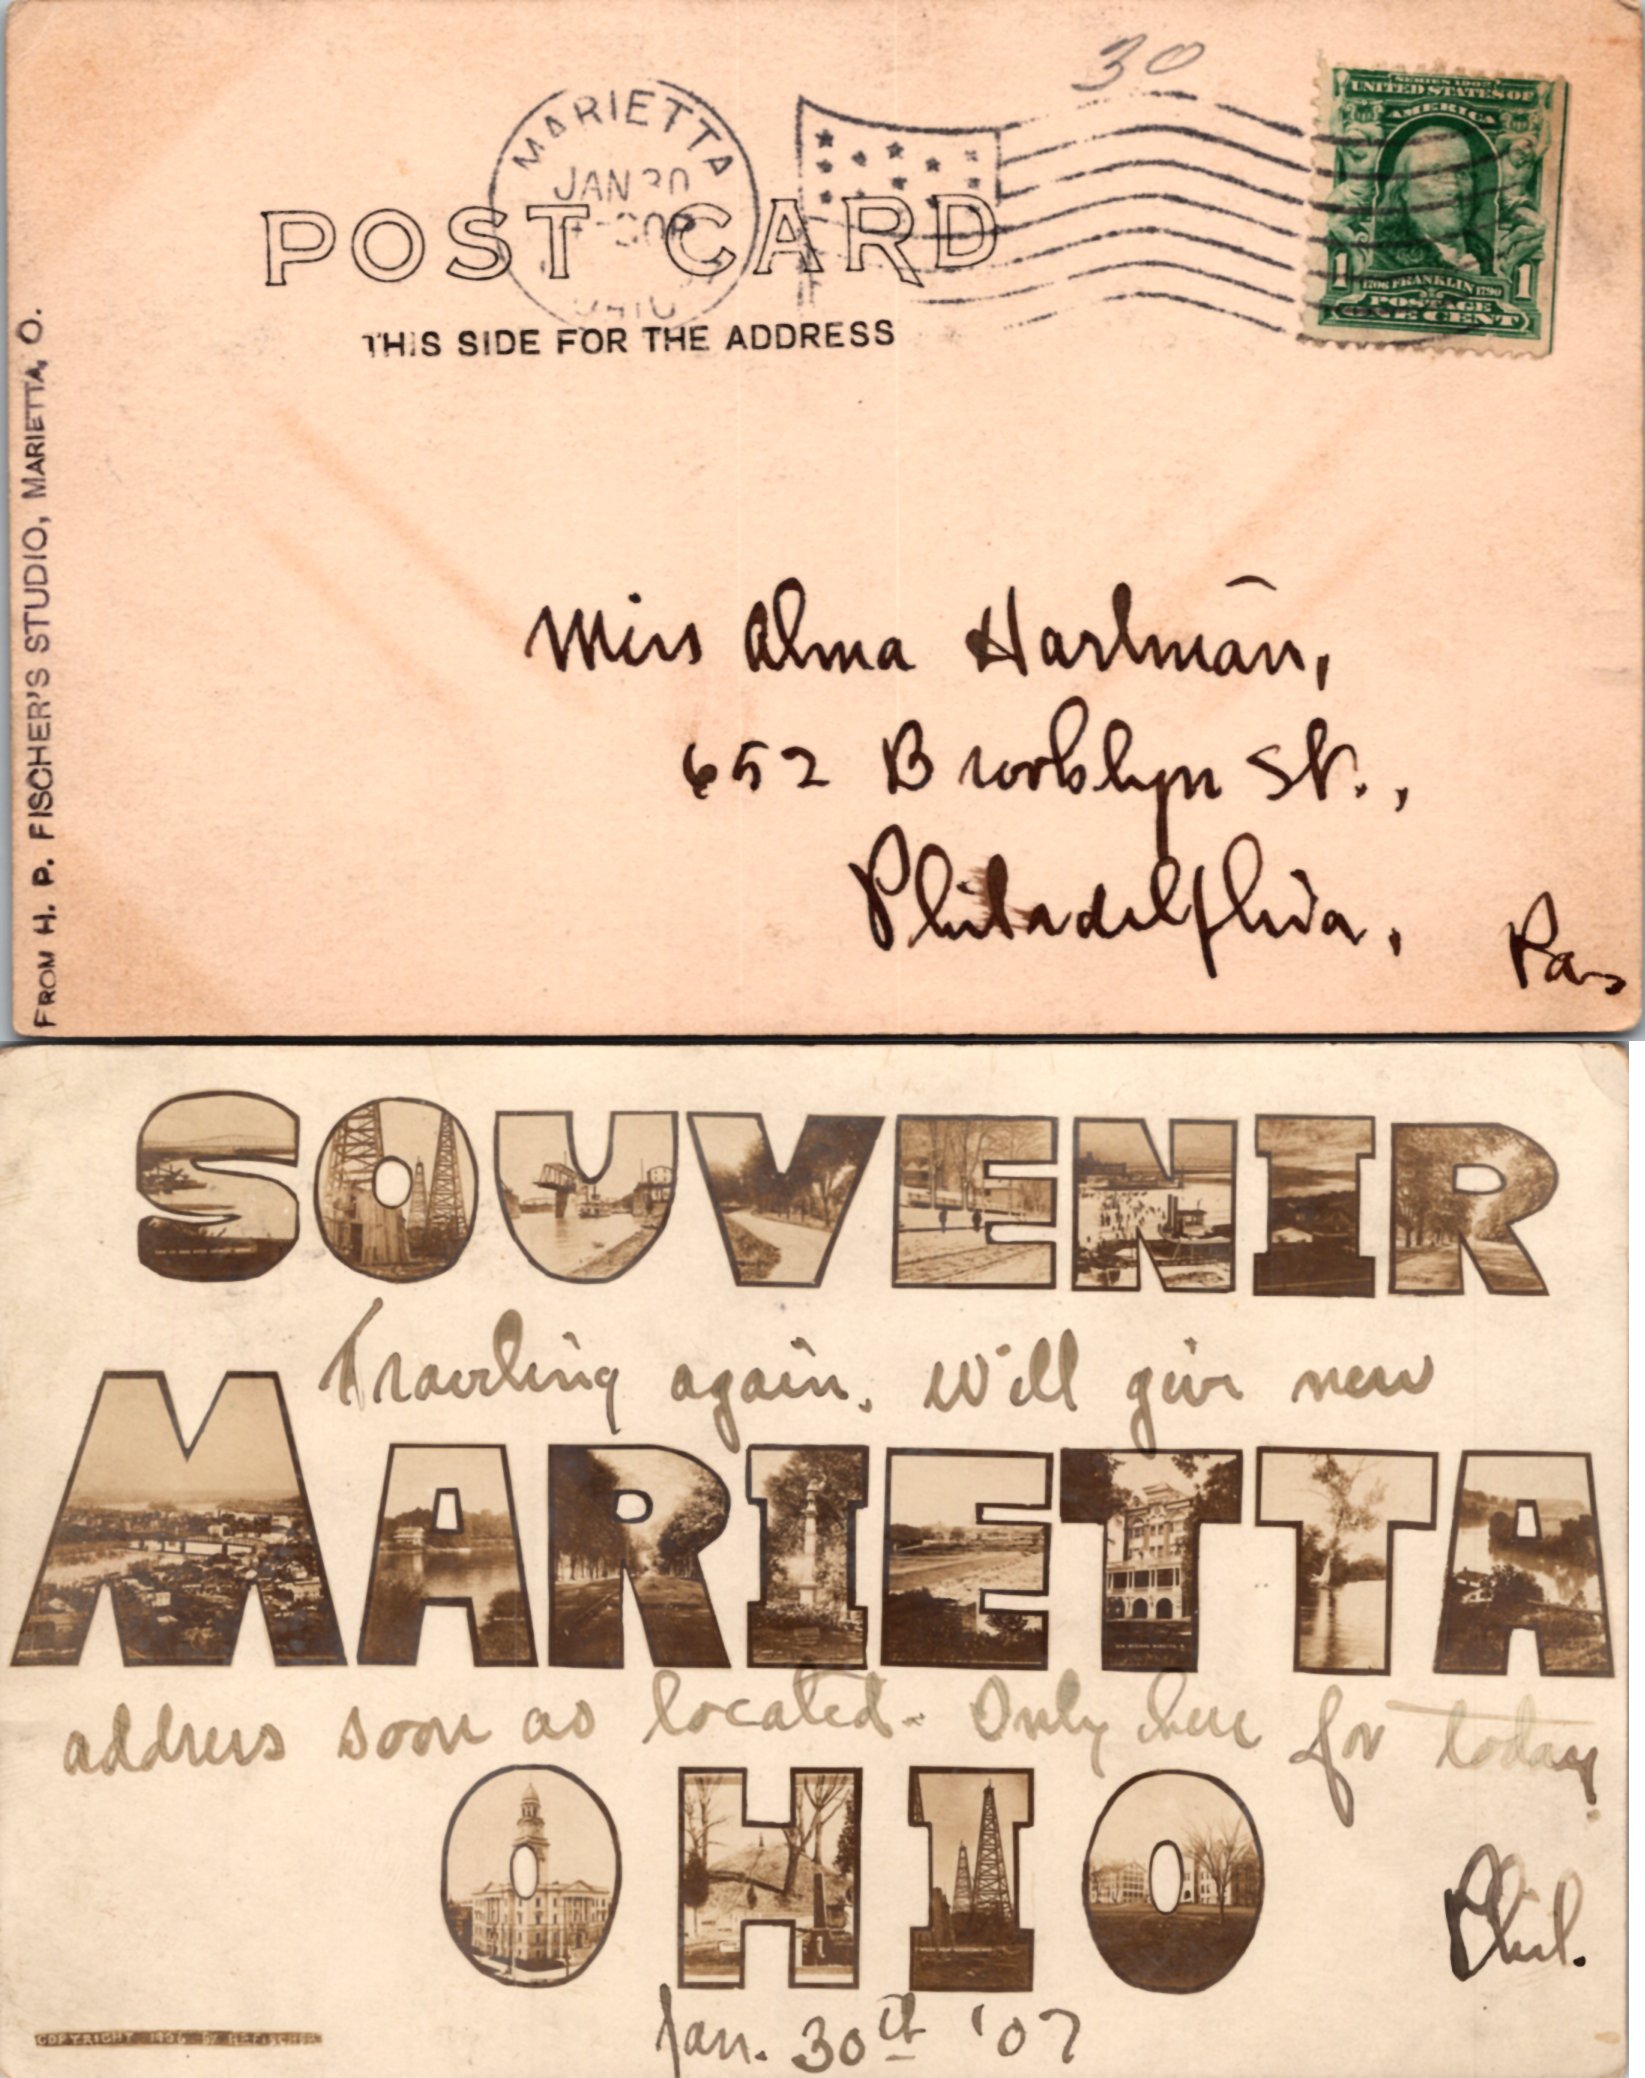 30
MARIETTA
JAN 30
OHIO
SERIES 1902
UNITED STATES OF
AMERICA
1 1
1706 FRANKLIN 1790
POSTAGE
ONE CENT
POST CARD
THIS SIDE FOR THE ADDRESS
FROM H. P. FISCHER'S STUDIO, MARIETTA, O.
Miss Alma Hartman,
652 Brooklyn St.,
Philadelphia,
Pa.
SOUVENIR
Traveling again. Will give new
MARIETTA
address soon as located. Only here for today.
OHIO
Phil.
Jan. 30th '07
COPYRIGHT 1906 BY H.P. FISCHER